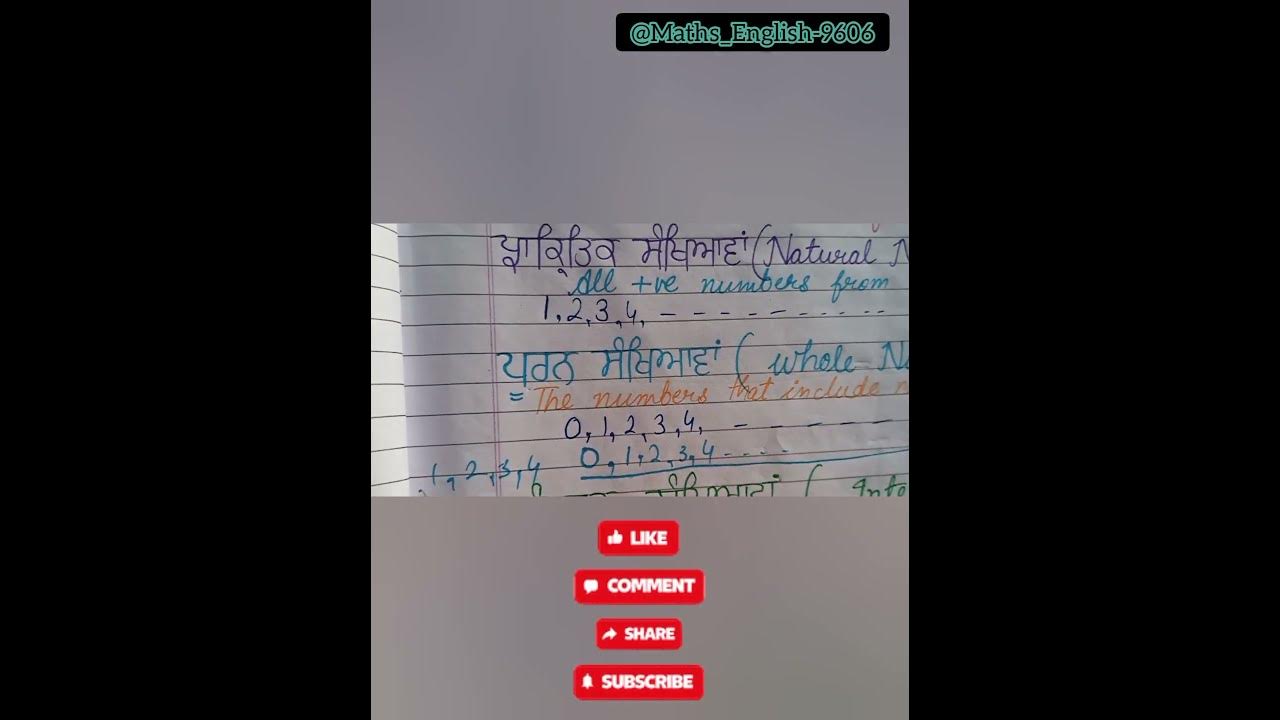 @Maths_English-9606
ਪ੍ਰਾਕ੍ਰਿਤਿਕ ਸੰਖਿਆਵਾਂ (Natural N
All +ve numbers from
1,2,3,4, – – – – – – – – – –
ਪੂਰਨ ਸੰਖਿਆਵਾਂ ( whole N
= The numbers that include
0,1,2,3,4, – – – – –
0,1,2,3,4 - - - -
1,2,3,4
ਸੰਖਿਆਵਾਂ ( Inte
LIKE
COMMENT
SHARE
SUBSCRIBE